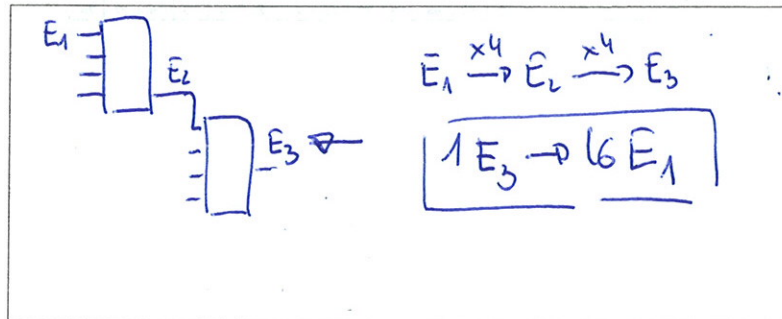 E1
E2
E3
E1 ×4→ E2 ×4→ E3
1 E3 → 16 E1